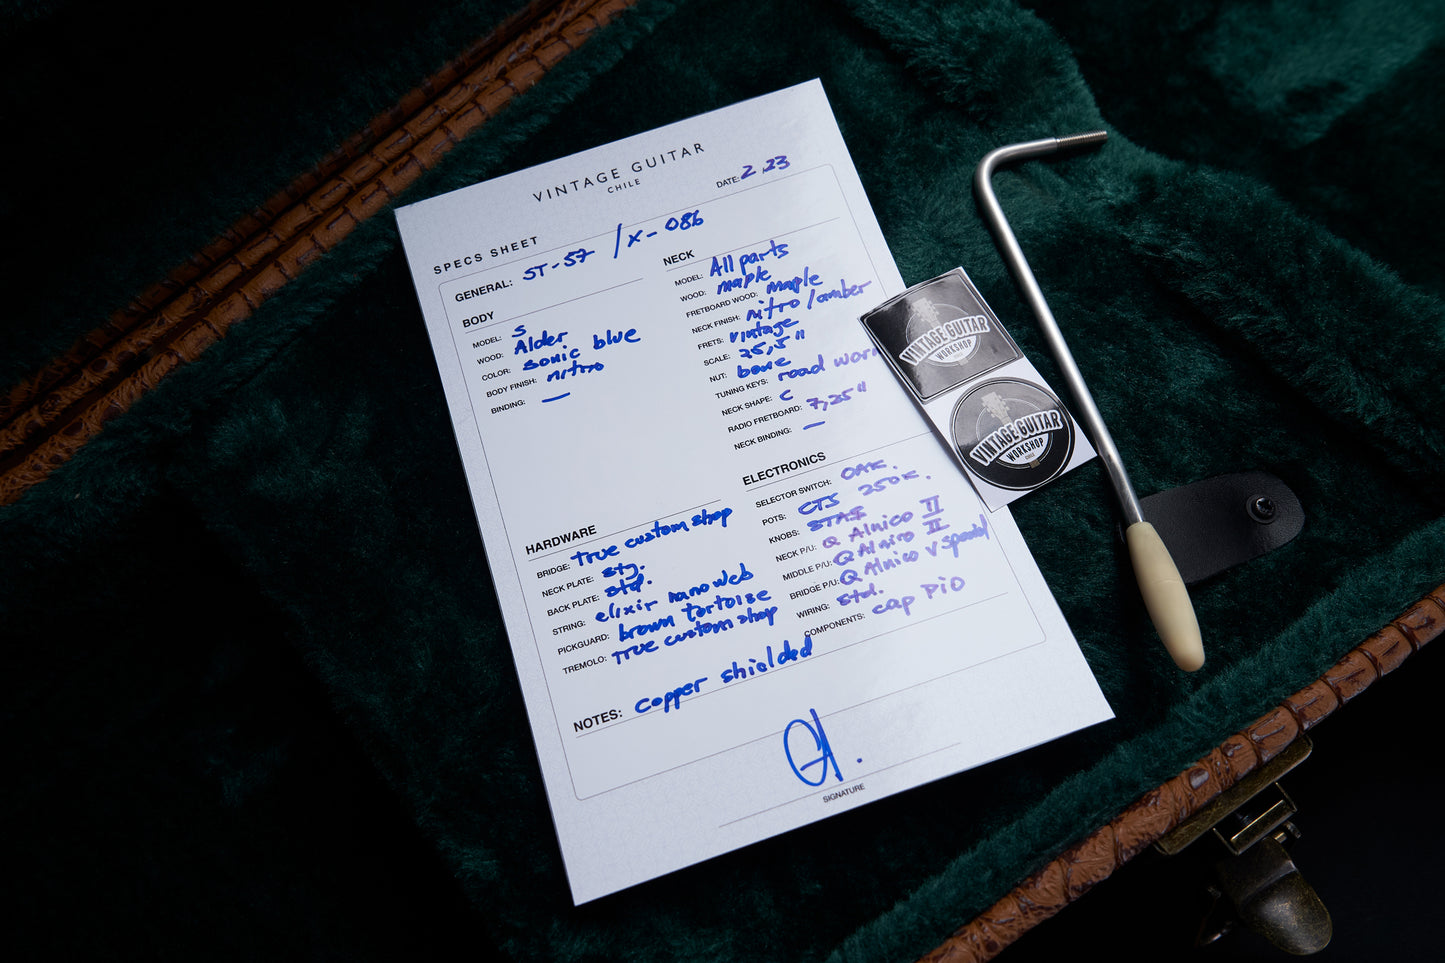 VINTAGE GUITAR
CHILE
SPECS SHEET
DATE: 2.23
GENERAL: ST-57 / X-086
BODY
MODEL: S
WOOD: Alder
COLOR: sonic blue
BODY FINISH: nitro
BINDING: —
NECK
MODEL: All parts
WOOD: maple
FRETBOARD WOOD: maple
NECK FINISH: nitro/amber
FRETS: vintage
SCALE: 25,5"
NUT: bone
TUNING KEYS: road worn
NECK SHAPE: C
RADIO FRETBOARD: 7,25"
NECK BINDING: —
HARDWARE
BRIDGE: true custom shop
NECK PLATE: std.
BACK PLATE: std.
STRING: elixir nanoweb
PICKGUARD: brown tortoise
TREMOLO: true custom shop
ELECTRONICS
SELECTOR SWITCH: OAK.
POTS: CTS 250K.
KNOBS:
NECK P/U: Q Alnico II
MIDDLE P/U: Q Alnico II
BRIDGE P/U: Q Alnico V special
WIRING: std.
COMPONENTS: cap PiO
NOTES: copper shielded
SIGNATURE
VINTAGE GUITAR
WORKSHOP
CHILE
VINTAGE GUITAR
WORKSHOP
CHILE